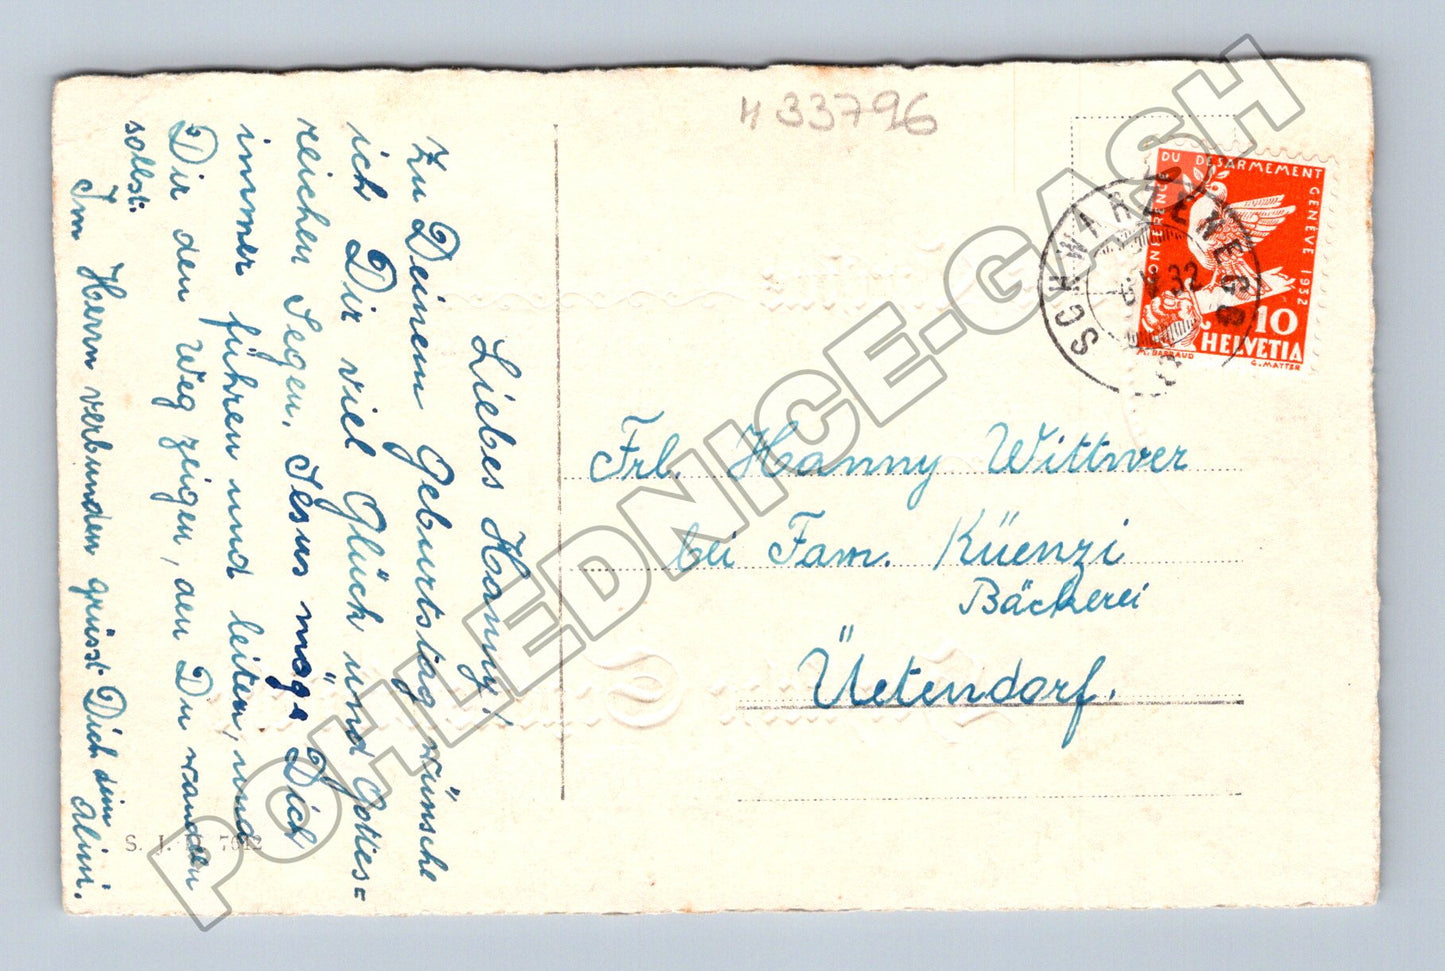 H 33796
Liebes Hanny!
Zu Deinem Geburtstag wünsche
ich Dir viel Glück und Gottes=
reichen Segen. Jesus möge Dich
immer führen und leiten, und
Dir den Weg zeigen, den Du wandeln
sollst.
Im Herrn verbunden grüsst Dich dein
Alini.
S. J. D. 7642
CONFERENCE DU DESARMEMENT GENEVE 1932
10
HELVETIA
G. MATTER
SCHWARZENEGG
32
Frl. Hanny Wittwer
bei Fam. Küenzi
Bäckerei
Üetendorf.
POHLEDNICE-GASH